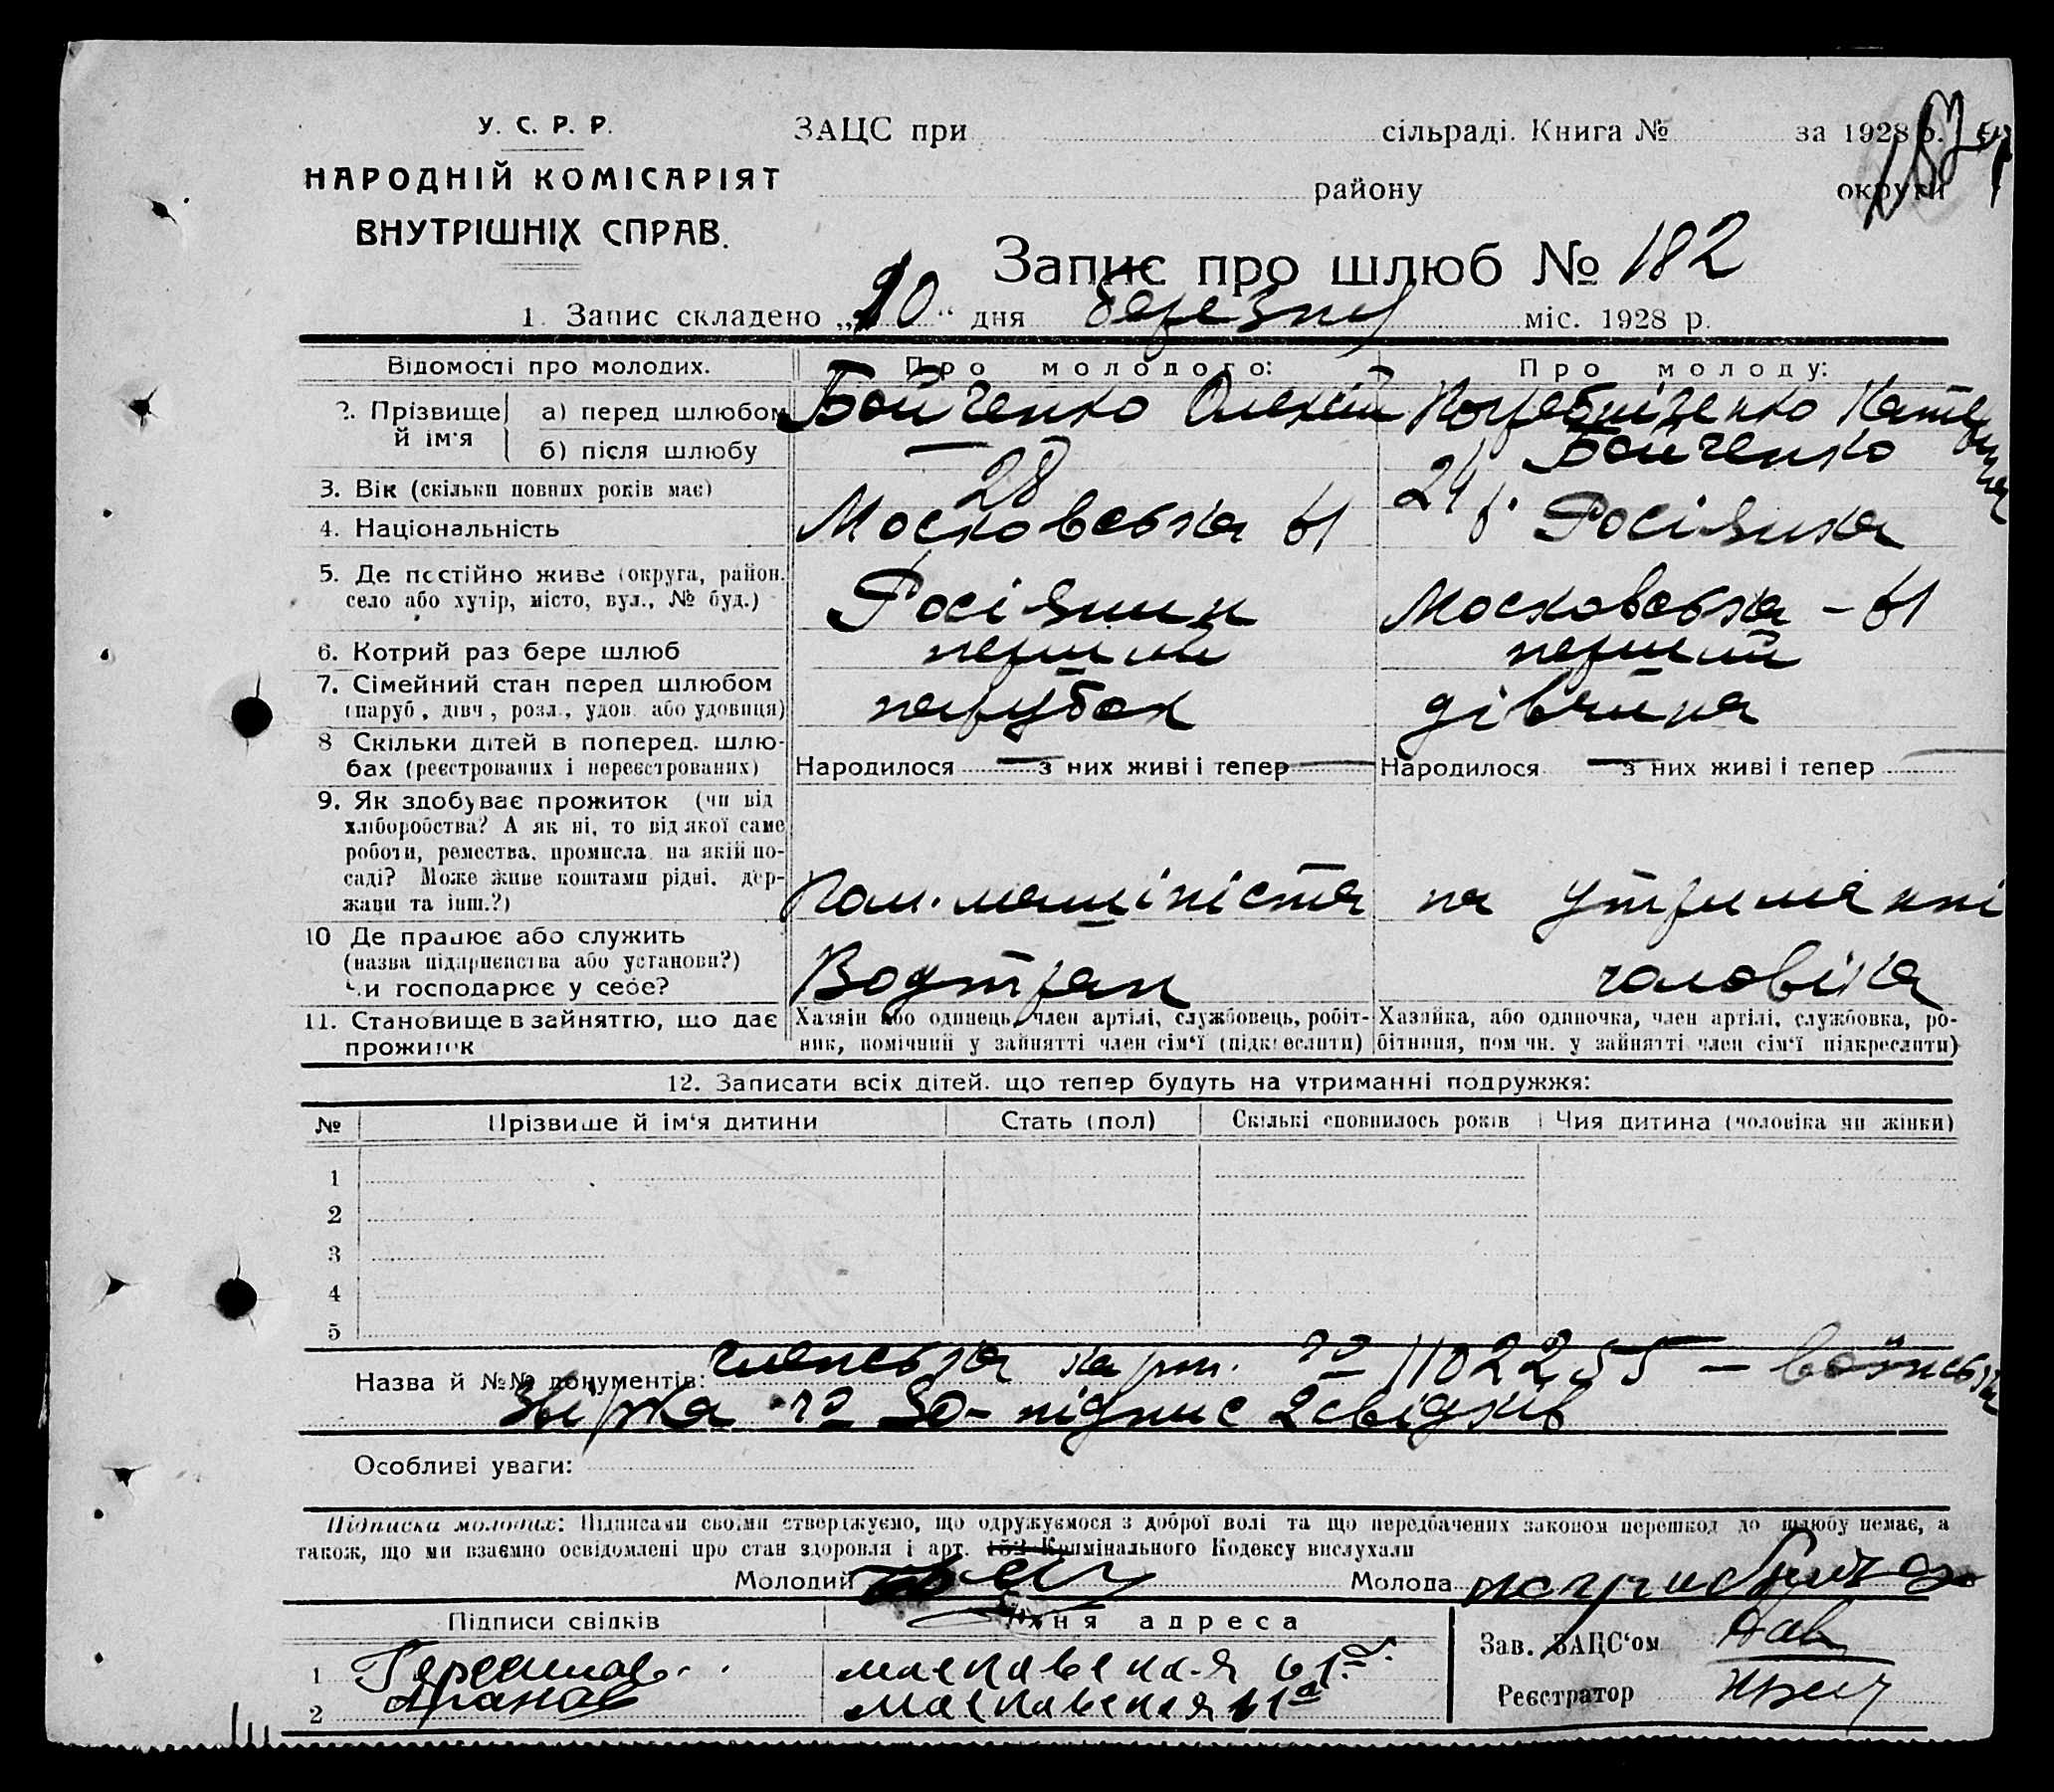 У. С. Р. Р.
НАРОДНІЙ КОМІСАРІЯТ
ВНУТРІШНІХ СПРАВ.
ЗАЦС при сільраді. Книга № за 1928 р.
району округи
Запис про шлюб № 182
1. Запис складено „20“ дня березня міс. 1928 р.
Відомості про молодих. Про молодого: Про молоду:
2. Прізвище й ім'я а) перед шлюбом Бойченко Олексій Погребніченко Катерина
б) після шлюбу — Бойченко
3. Вік (скільки повних років має) 28 24 р.
4. Національність Московська 61 Росіянка
5. Де постійно живе (округа, район, Росіянин Московська - 61
село або хутір, місто, вул., № буд.)
6. Котрий раз бере шлюб перший перший
7. Сімейний стан перед шлюбом парубок дівчина
(паруб, дівч, розл., удов. або удовиця)
8 Скільки дітей в поперед. шлю-
бах (реєстрованих і нереєстрованих) Народилося — з них живі і тепер — Народилося — з них живі і тепер —
9. Як здобуває прожиток (чи від
хліборобства? А як ні, то від якої саме
роботи, ремества, промисла на якій по-
саді? Може живе коштами рідні, дер-
жави та інш.?) Пом. машиніста на утриманні
10 Де працює або служить
(назва підприємства або установи?)
Чи господарює у себе? Водтран чоловіка
11. Становище в зайняттю, що дає
прожиток
Хазяїн або одинець, член артілі, службовець, робіт-
ник, помічний у зайнятті член сім'ї (підкреслити)
Хазяйка, або одиночка, член артілі, службовка, ро-
бітниця, помічн. у зайнятті член сім'ї підкреслити)
12. Записати всіх дітей, що тепер будуть на утриманні подружжя:
№ Прізвище й ім'я дитини Стать (пол) Скількі сповнилось років Чия дитина (чоловіка чи жінки)
1
2
3
4
5
Назва й №№ документів: членська карт. № 1102255 —
№ 50 - підпис 2 свідків
Особливі уваги:
Підписка молодих: Підписами своїми стверджуємо, що одружуємося з доброї волі та що передбачених законом перешкод до шлюбу немає, а
також, що ми взаємно освідомлені про стан здоровля і арт. 152 Кримінального Кодексу вислухали
Молодий Молода
Підписи свідків Їхня адреса
Зав. ЗАЦС'ом
1 Московская 61
2 Московская 61а
Реєстратор